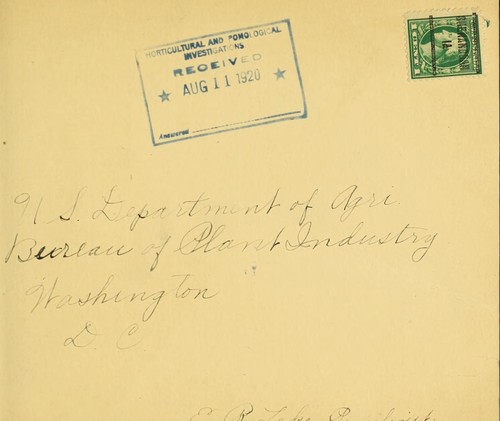 HORTICULTURAL AND POMOLOGICAL
INVESTIGATIONS
RECEIVED
★ AUG 11 1920 ★
Answered
U. S. Department of Agri.
Bureau of Plant Industry
Washington
D. C.
E. R. Lake